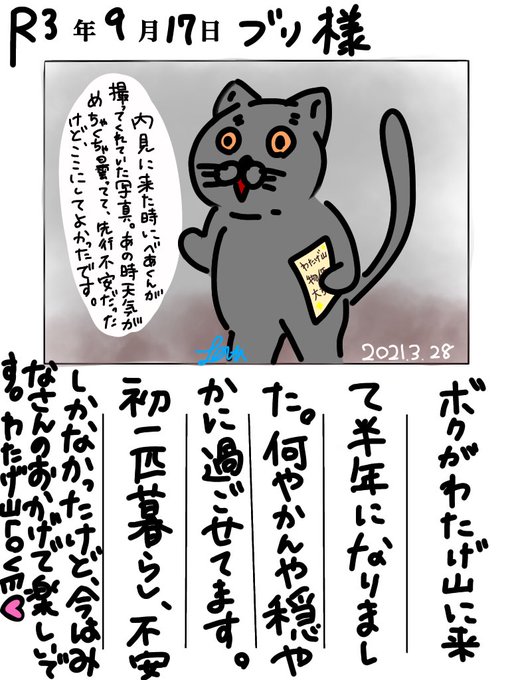 R3年9月17日 ブリ様
内見に来た時にべあくんが
撮ってくれていた写真。あの時天気が
めちゃくちゃ曇ってて、先行不安だった
けど、ここにしてよかったです。
わたげ山
物件
2021.3.28
ボクがわたげ山に来
て半年になりまし
た。何やかんや穏や
かに過ごせてます。
初一匹暮らし、不安
しかなかったけど、今はみ
なさんのおかげで楽しいで
す。わたげ山LOVE